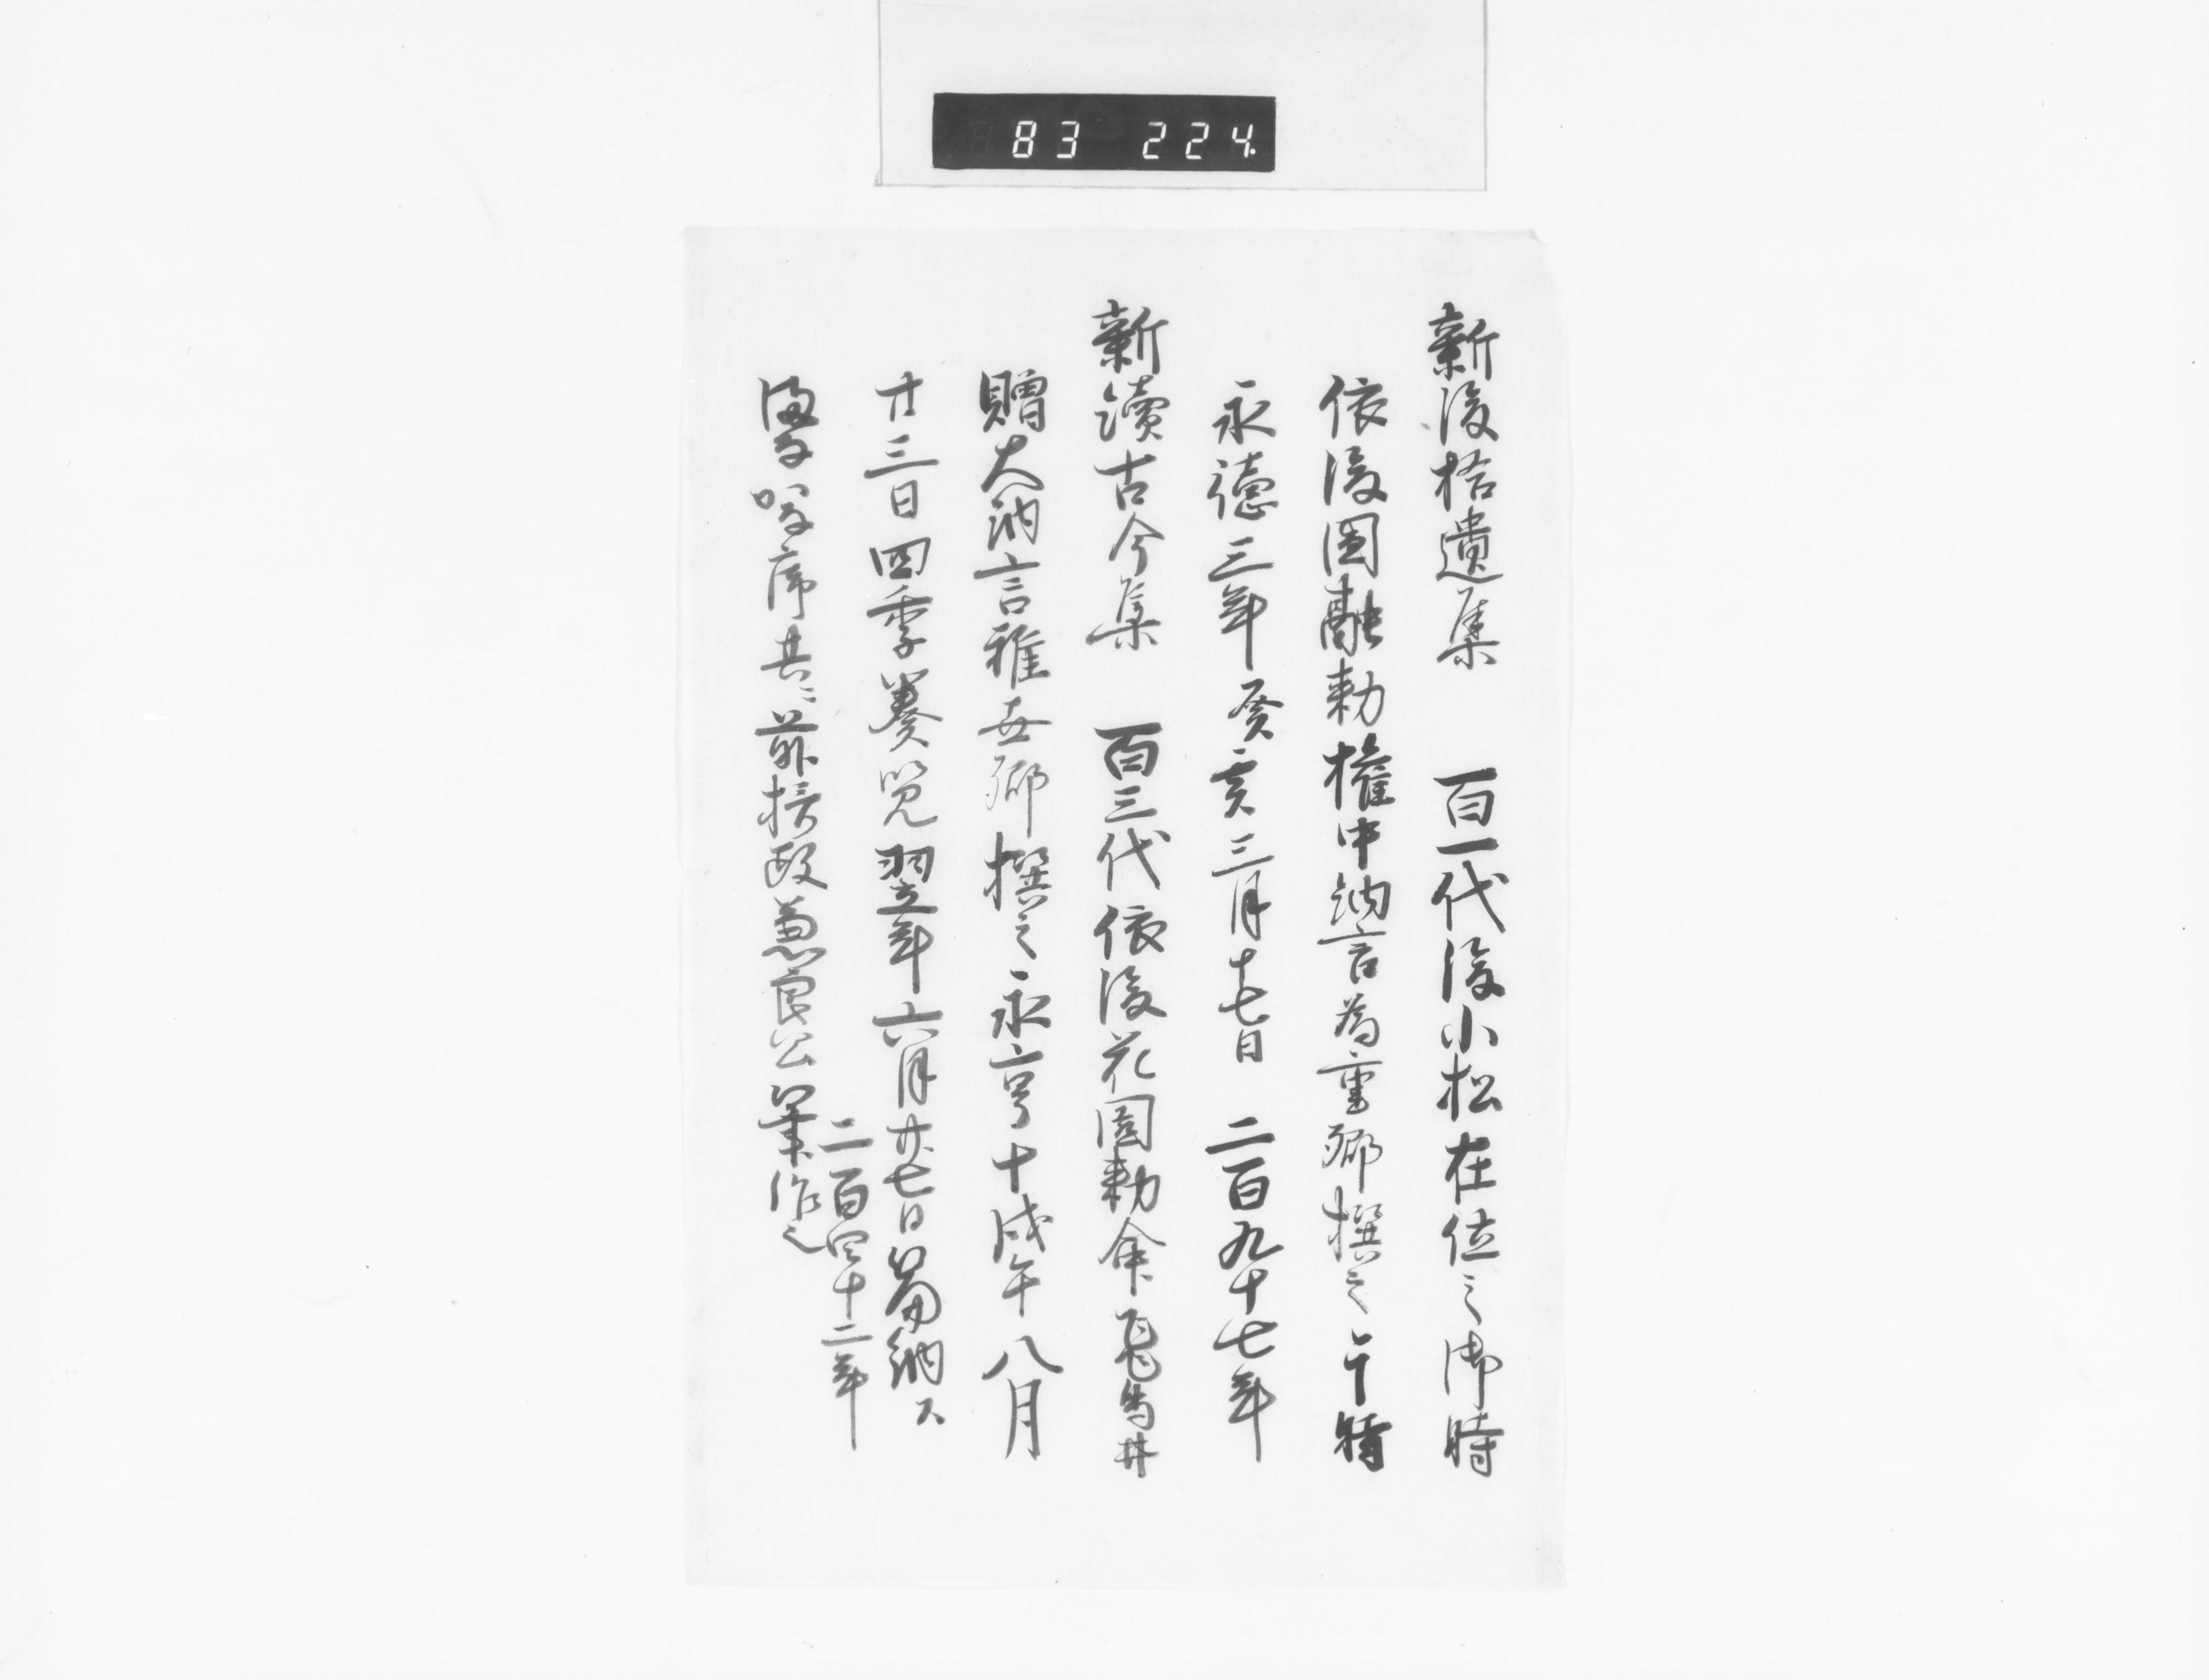 83 224.
新後拾遺集 百一代後小松在位之御時
依後圓融勅權中納言為重卿撰之于時
永德三年癸亥三月十七日 二百九十七年
新續古今集 百三代依後花園勅命飛鳥井
贈大納言雅世卿撰之永享十戊午八月
廿三日四季奏覽翌年六月廿七日篇納ス
二百四十二年
漢字哥序共ニ前摂政兼良公筆作之